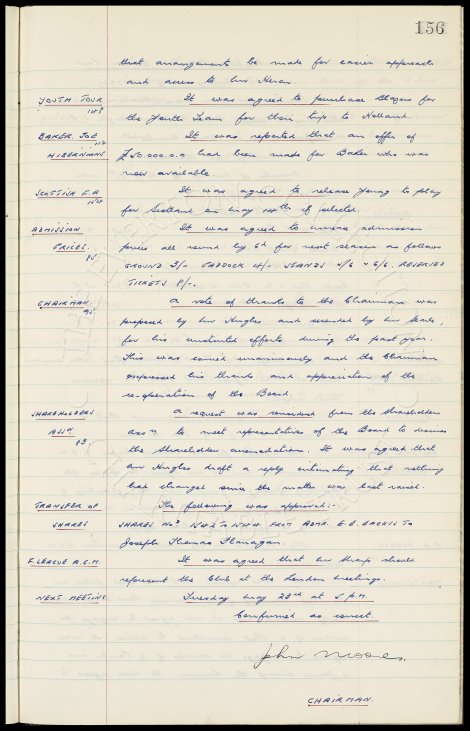 156
that arrangements be made for easier approach
and access to Mr Heron.
YOUTH TOUR It was agreed to purchase Blazers for
the Youth Team for their trip to Holland.
BAKER JOE It was reported that an offer of
HIBERNIANS £50,000.0.0 had been made for Baker who was
now available
SCOTTISH F.A. It was agreed to release Young to play
for Scotland on May if selected.
ADMISSION It was agreed to admission
PRICES. price all round by 6d for next season as follows
GROUND 3/- PADDOCK 4/- STANDS 6/6, RESERVED
TICKETS 8/-.
CHAIRMAN A vote of thanks to the Chairman was
proposed by Mr Hughes and seconded by Mr Searle,
for his efforts during the past year.
This was carried unanimously and the Chairman
expressed his thanks and appreciation of the
co-operation of the Board.
SHAREHOLDERS A request was received from the Shareholders
ASSN. Assn to meet representatives of the Board to discuss
the Shareholders It was agreed that
Mr Hughes draft a reply intimating that nothing
had changed since the matter was last raised.
TRANSFER OF The following was approved:-
SHARES SHARES Nos. FROM ADMR. TO
Joseph Thomas Flanagan.
F. LEAGUE A.G.M. It was agreed that Mr Sharp should
represent the Club at the London meetings.
NEXT MEETING Tuesday May 23rd at 5 P.M.
Confirmed as correct.
John Moores.
CHAIRMAN.